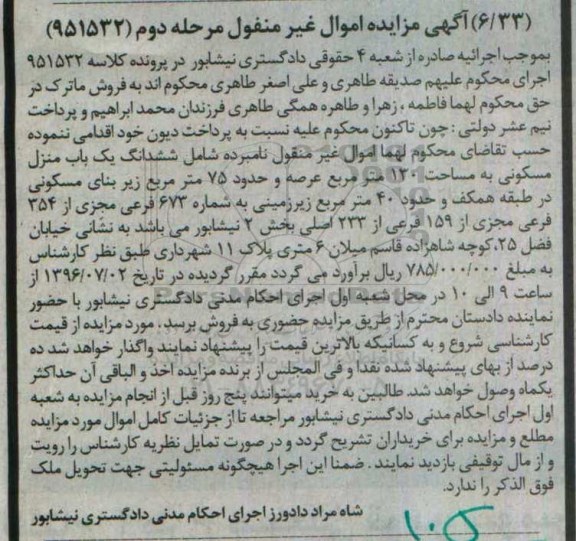 (۶/۳۳) آگهی مزایده اموال غیر منقول مرحله دوم (۹۵۱۵۳۲)
بموجب اجرائیه صادره از شعبه ۴ حقوقی دادگستری نیشابور در پرونده کلاسه ۹۵۱۵۳۲
اجرای محکوم علیهم صدیقه طاهری و علی اصغر طاهری محکوم اند به فروش ماترک در
حق محکوم لهما فاطمه ، زهرا و طاهره همگی طاهری فرزندان محمد ابراهیم و پرداخت
نیم عشر دولتی : چون تاکنون محکوم علیه نسبت به پرداخت دیون خود اقدامی ننموده
حسب تقاضای محکوم لهما اموال غیر منقول نامبرده شامل ششدانگ یک باب منزل
مسکونی به مساحت ۱۲۰ متر مربع عرصه و حدود ۷۵ متر مربع زیر بنای مسکونی
در طبقه همکف و حدود ۴۰ متر مربع زیرزمینی به شماره ۶۷۳ فرعی مجزی از ۳۵۴
فرعی مجزی از ۱۵۹ فرعی از ۲۳۳ اصلی بخش ۲ نیشابور می باشد به نشانی خیابان
فضل ۲۵،کوچه شاهزاده قاسم میلان ۶ متری پلاک ۱۱ شهرداری طبق نظر کارشناس
به مبلغ ۷۸۵/۰۰۰/۰۰۰ ریال برآورد می گردد مقرر گردیده در تاریخ ۱۳۹۶/۰۷/۰۲ از
ساعت ۹ الی ۱۰ در محل شعبه اول اجرای احکام مدنی دادگستری نیشابور با حضور
نماینده دادستان محترم از طریق مزایده حضوری به فروش برسد . مورد مزایده از قیمت
کارشناسی شروع و به کسانیکه بالاترین قیمت را پیشنهاد نمایند واگذار خواهد شد ده
درصد از بهای پیشنهاد شده نقدا و فی المجلس از برنده مزایده اخذ و الباقی آن حداکثر
یکماه وصول خواهد شد. طالبین به خرید میتوانند پنج روز قبل از انجام مزایده به شعبه
اول اجرای احکام مدنی دادگستری نیشابور مراجعه تا از جزئیات کامل اموال مورد مزایده
مطلع و مزایده برای خریداران تشریح گردد و در صورت تمایل نظریه کارشناس را رویت
و از مال توقیفی بازدید نمایند . ضمنا این اجرا هیچگونه مسئولیتی جهت تحویل ملک
فوق الذکر را ندارد.
شاه مراد دادورز اجرای احکام مدنی دادگستری نیشابور